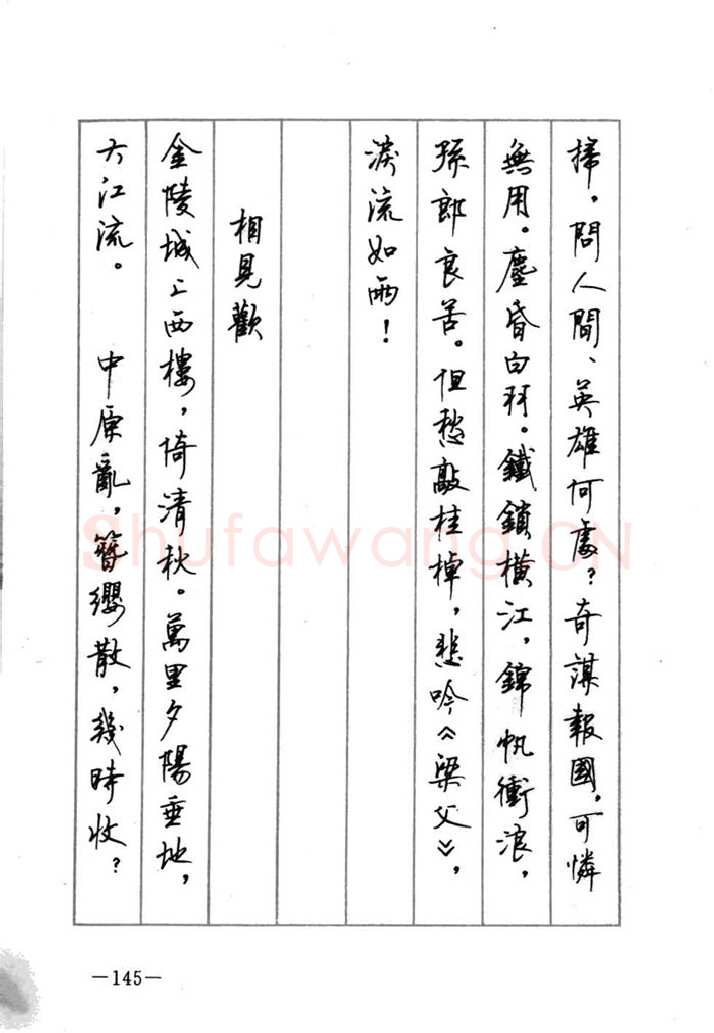 掃。問人間、英雄何處？奇謀報國，可憐
無用。塵昏白羽。鐵鎖橫江，錦帆衝浪，
孫郎良苦。但愁敲桂棹，悲吟《梁父》，
淚流如雨！
相見歡
金陵城上西樓，倚清秋。萬里夕陽垂地，
大江流。 中原亂，簪纓散，幾時收？
Shufawang.CN
—145—